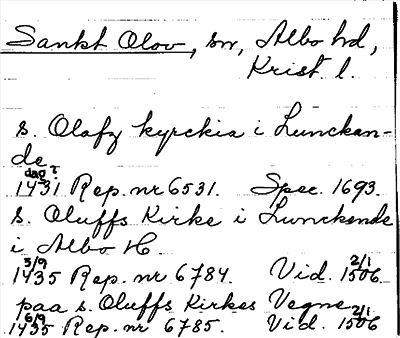 Sankt Olov, sn, Albo hd,
Krist. l.
s. Olafz kyrckia i Lunckan-
de
dao ?
1431 Rep. nr 6531. Spec. 1693.
s. Oluffs Kirke i Lunckende
i Albo H.
5/9 2/1
1435 Rep. nr 6784. Vid. 1506.
paa s. Oluffs Kirkes Vegne
6/9 2/1
1435 Rep. nr 6785. Vid. 1506